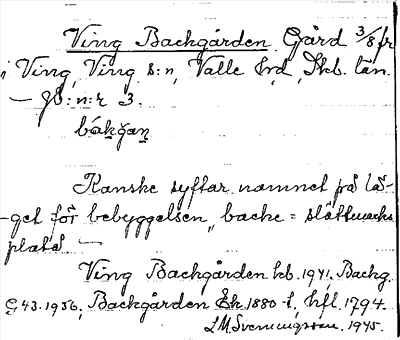 Ving Backgården Gård 3/8 fr
i Ving, Ving s:n, Valle hrd, Skb. län.
— jb:n:r 3.
Kanske syftar namnet på lä-
-get för bebyggelsen, backe =
plats —
Ving Backgården kb. 1941, Backg.
G43. 1956, Backgården Ek 1880-t, hfl. 1794.
L M Svenungsson. 1945.